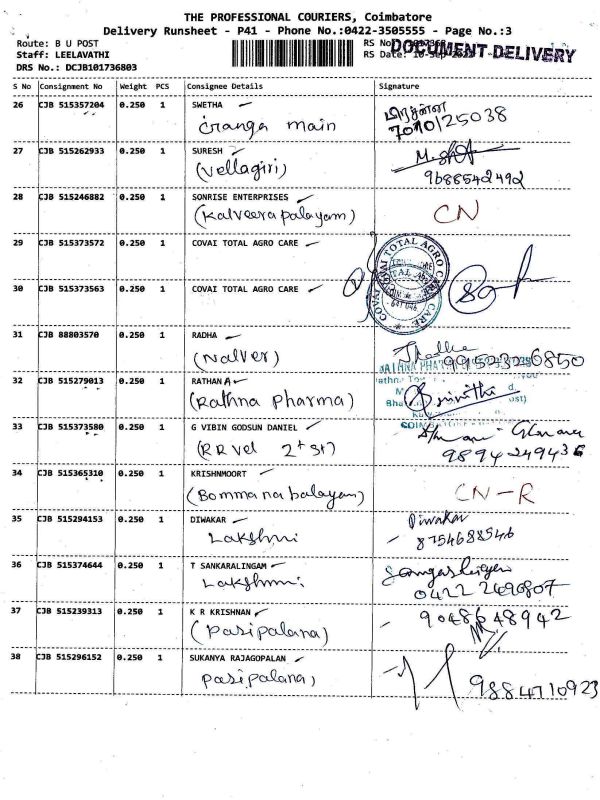 THE PROFESSIONAL COURIERS, Coimbatore
Delivery Runsheet - P41 - Phone No.:0422-3505555 - Page No.:3
Route: B U POST
RS No
DOCUMENT DELIVERY
Staff: LEELAVATHI
RS Date:
DRS No.: DCJB101736803
S No Consignment No Weight PCS Consignee Details Signature
26 CJB 515357204 0.250 1 SWETHA
main
27 CJB 515262933 0.250 1 SURESH
(Vellagiri)
9688542492
28 CJB 515246882 0.250 1 SONRISE ENTERPRISES
(Kalveerapalayam) CN
29 CJB 515373572 0.250 1 COVAI TOTAL AGRO CARE
COVAI TOTAL AGRO CARE
30 CJB 515373563 0.250 1 COVAI TOTAL AGRO CARE
31 CJB 88803570 0.250 1 RADHA
(Nalver)
32 CJB 515279013 0.250 1 RATHAN A
(Rathna Pharma)
33 CJB 515373580 0.250 1 G VIBIN GODSUN DANIEL
(RR vel 2+ st)
9894249436
34 CJB 515365310 0.250 1 KRISHNMOORT
(Bommanabalayam) CN-R
35 CJB 515294153 0.250 1 DIWAKAR Diwakar
Lakshmi 8754688546
36 CJB 515374644 0.250 1 T SANKARALINGAM
Lakshmi 0422 2490807
37 CJB 515239313 0.250 1 K R KRISHNAN
(Pasipalana) 9048648942
38 CJB 515296152 0.250 1 SUKANYA RAJAGOPALAN
Pasipalana) 9884710923